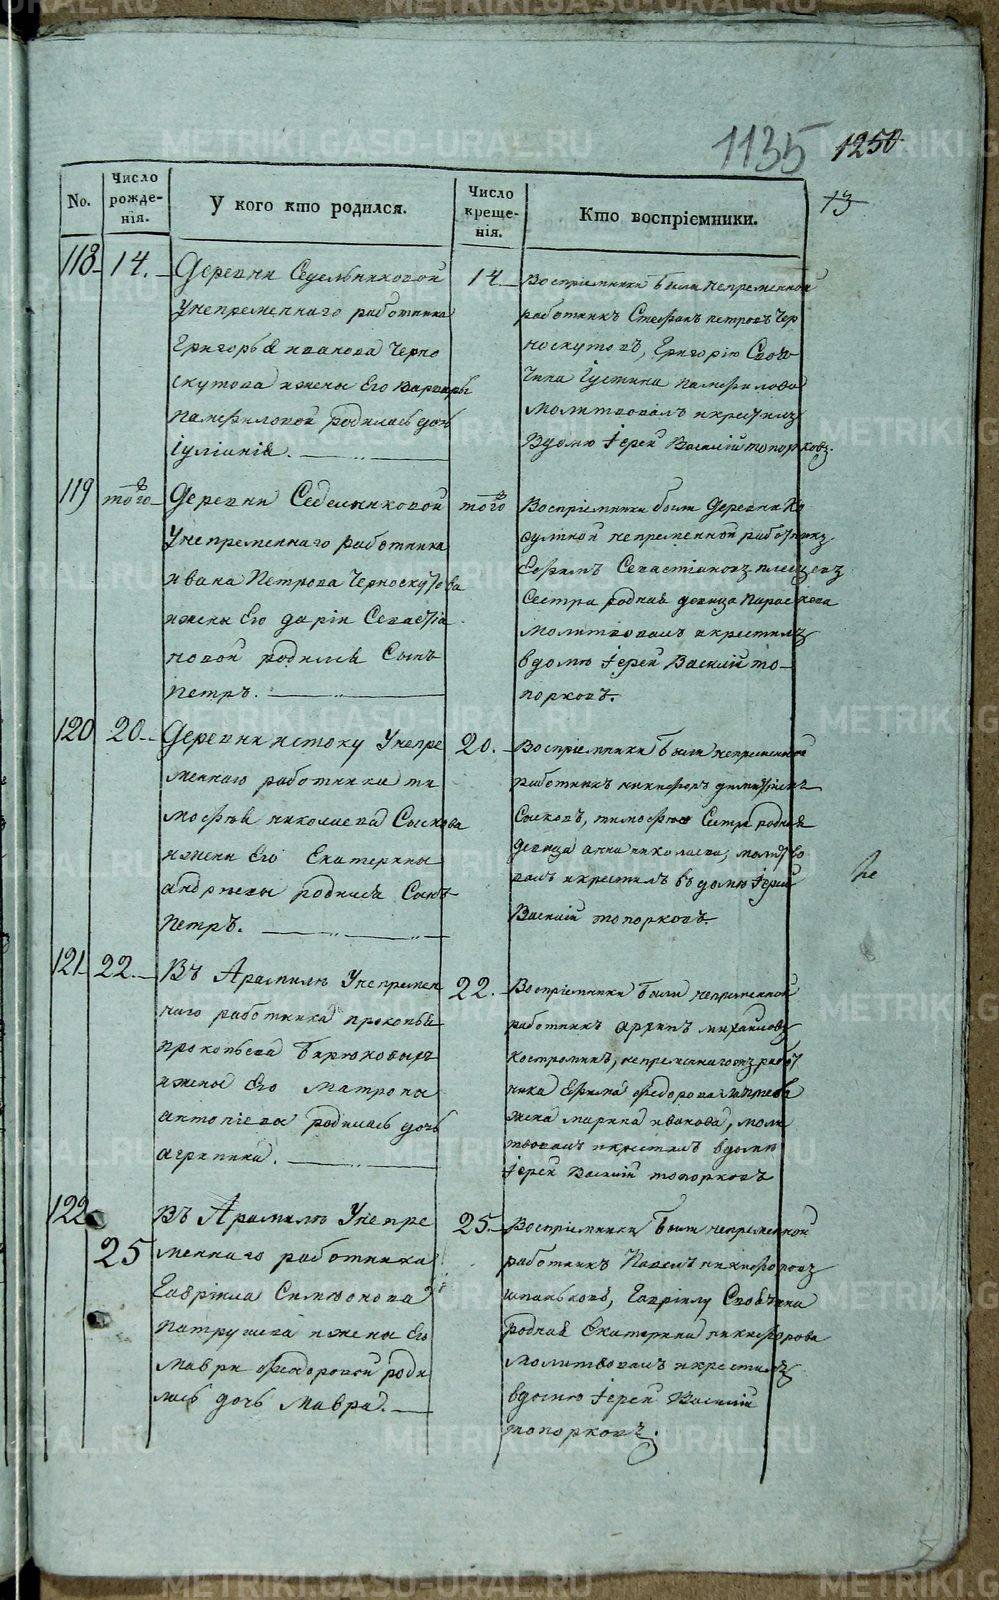 1135 1250
13
No.
Число рожде-
нія.
У кого кто родился.
Число креще-
нія.
Кто воспріемники.
118 14. Деревни Седельниковой
Унепременнаго работника
Григорья иванова Черно
скутова ижены Его варвары
Памфиловой родилась дочь
Іуліанія.
14. Воспріемники были непременной
работникъ Стефанъ петровъ Чер
носкутовъ, Григорію Своя
Чина Іустина памфилова
молитвовалъ икрестилъ
Вдомю Іерей Василій топорковъ.
119 того Деревни Седельниковой
Унепременнаго работника
ивана Петрова Черноскутова
ижены Его даріи Севастіа
новой родился Сынъ
петръ.
того Воспріемники были Деревни Ко
сулиной непременной работникъ
Ефимъ Севастіановъ плещевъ
Сестра родная девица Параскова
молитвовалъ икрестилъ
вдомю Іерей Василій то-
порковъ.
120 20. Деревни истоку Унепре
меннаго работника ти
мофея николаева Сыскова
ижены Его Екатерины
андреевы родился Сынъ
Петръ.
20. Воспріемники были непременной
работникъ никифоръ димитріевъ
Сысковъ, тимофею Сестра родная
девица анна николаева, молитво
валъ икрестилъ вдомю Іерей
Василій топорковъ.
121 22. Въ Арамилю Унепремен
наго работника прокопья
прокопьева бирюковыхъ
ижены Его матроны
антоніевы родилась дочь
агрипина.
22. Воспріемники были непременной
работникъ архипъ михаиловъ
костроминъ, непременнагожъ работ
ника Ефима федорова лаптева
жена марина иванова, моли
твовалъ икрестилъ вдомю
Іерей Василій топорковъ
122 25 Въ Арамилю Унепре
меннаго работника
Гавріила Симіонова
патрушева ижены Его
мавры федоровой роди
лась дочь мавра.
25. Воспріемники были непременной
работникъ Павелъ никифоровъ
шпаньковъ, Гавріилу Своячина
родная Екатерина никифорова
молитвовалъ икрестилъ
вдомю Іерей Василій
топорковъ.